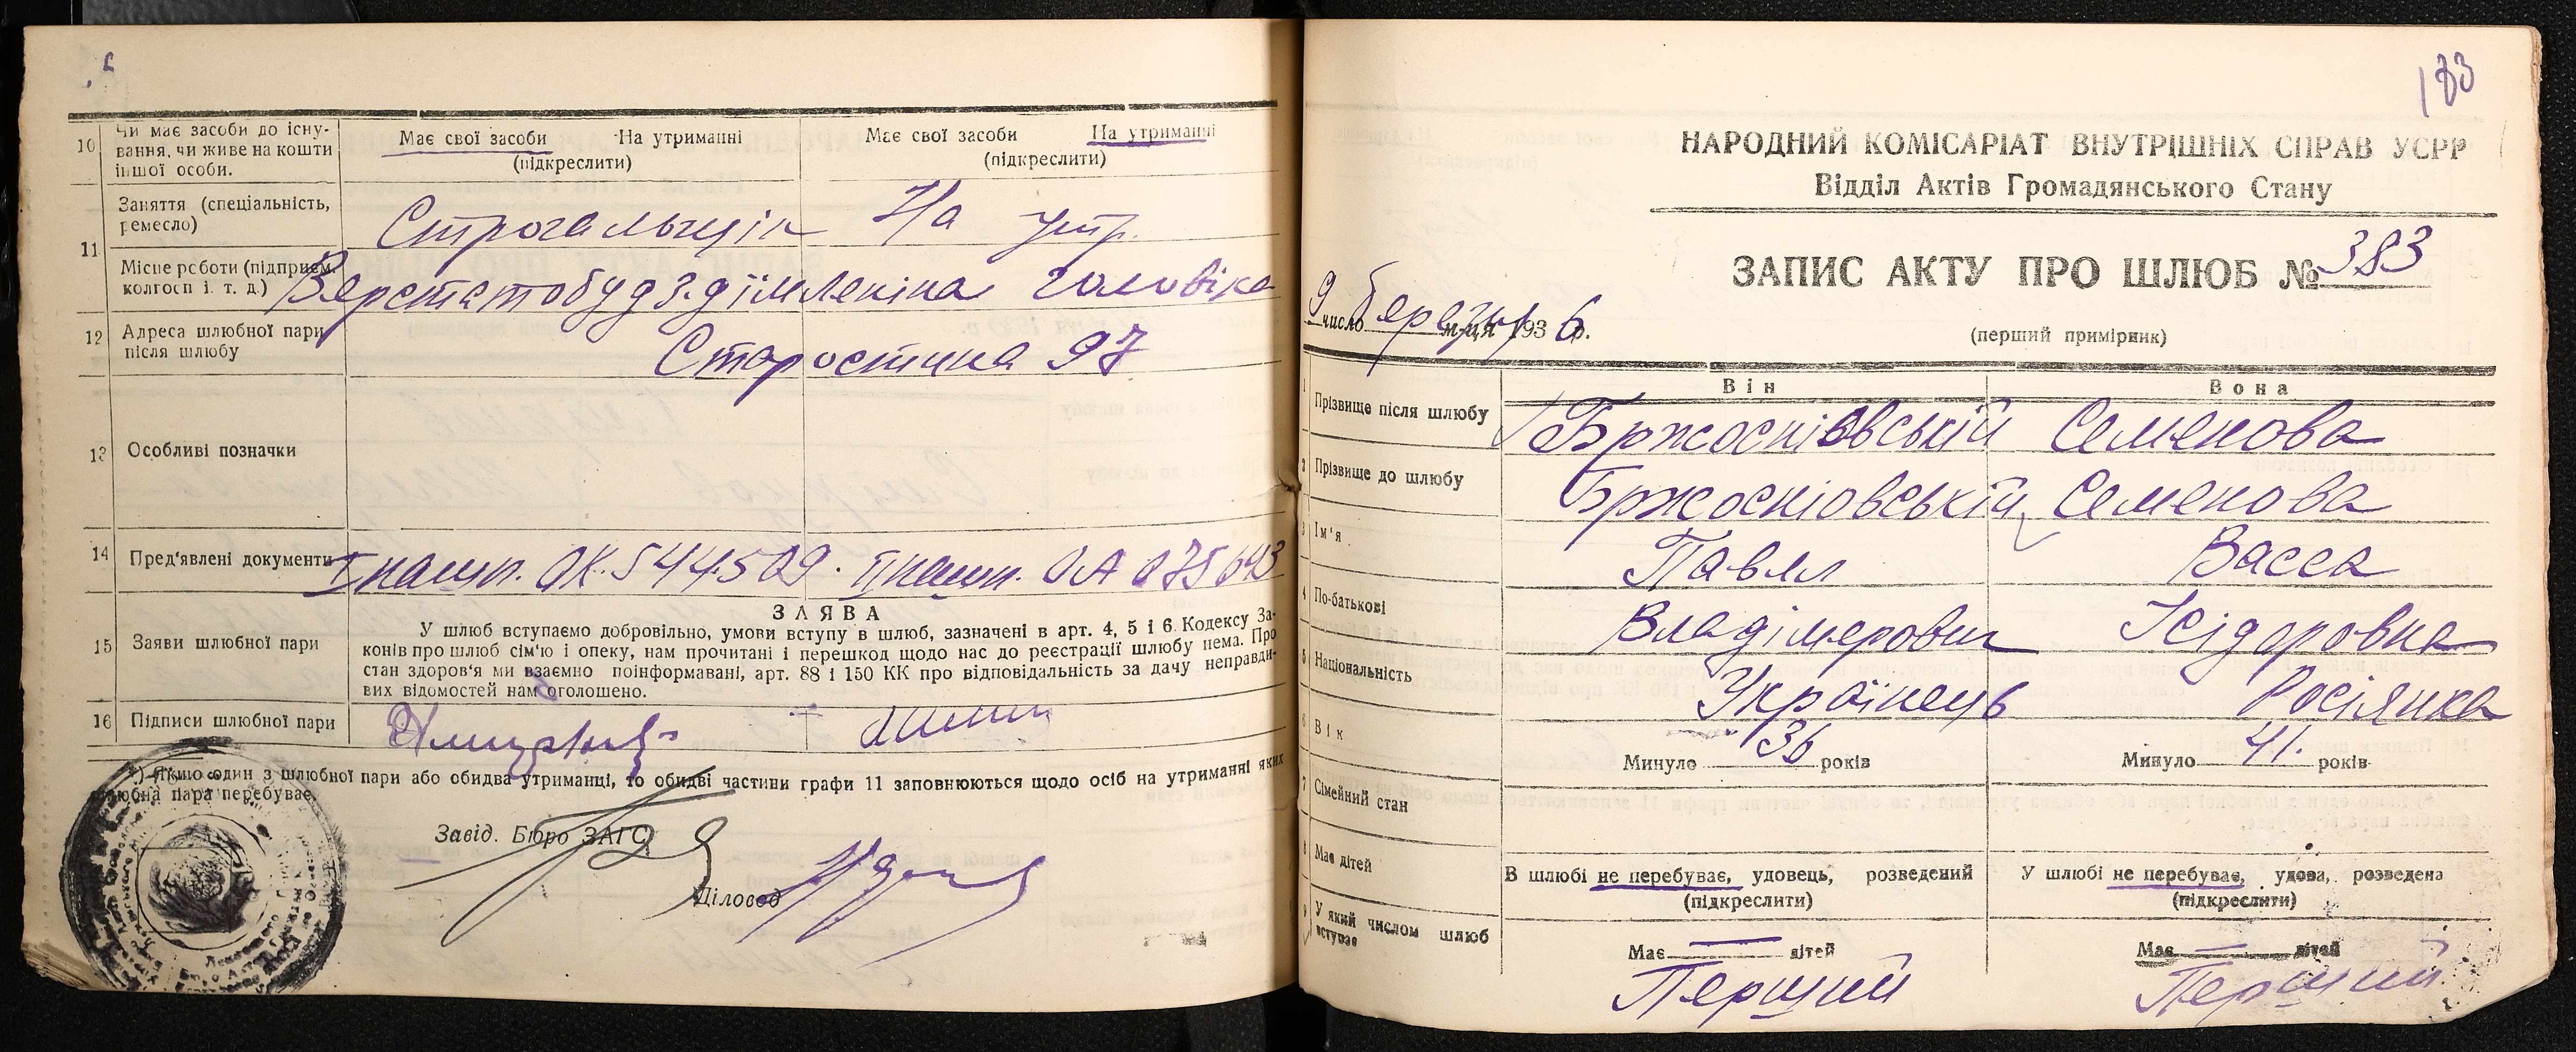 10 Чи має засоби до існу-
вання, чи живе на кошти
іншої особи.
Має свої засоби На утриманні
(підкреслити)
Має свої засоби На утриманні
(підкреслити)
11 Заняття (спеціальність,
ремесло)
Строгальщік На утр.
Місце роботи (підприєм.
колгосп і. т. д.)
Верстатобуд з. дім Леніна чоловіка
12 Адреса шлюбної пари
після шлюбу
Старостина 97
13 Особливі позначки
14 Пред'явлені документи
ОК. 544509. ОА 075643
ЗАЯВА
15 Заяви шлюбної пари
У шлюб вступаємо добровільно, умови вступу в шлюб, зазначені в арт. 4, 5 і 6 Кодексу За-
конів про шлюб сім'ю і опеку, нам прочитані і перешкод щодо нас до реєстрації шлюбу нема. Про
стан здоров'я ми взаємно поінформавані, арт. 88 і 150 КК про відповідальність за дачу неправди-
вих відомостей нам оголошено.
16 Підписи шлюбної пари
*) Якщо один з шлюбної пари або обидва утриманці, то обидві частини графи 11 заповнюються щодо осіб на утриманні яких
шлюбна пара перебуває.
Завід. Бюро ЗАГС
Діловод
183
НАРОДНИЙ КОМІСАРІАТ ВНУТРІШНІХ СПРАВ УСРР
Відділ Актів Громадянського Стану
ЗАПИС АКТУ ПРО ШЛЮБ № 383
9 число Березня м-ця 1936 р.
(перший примірник)
Він Вона
1 Прізвище після шлюбу
Бржосніовській Семенова
2 Прізвище до шлюбу
Бржосніовській Семенова
3 Ім'я
Павел Васса
4 По-батькові
Владімерович Ісідоровна
5 Національність
Українець Росіянка
6 Вік
Минуло 36 років Минуло 41. років
7 Сімейний стан
В шлюбі не перебуває, удовець, розведений
(підкреслити)
У шлюбі не перебуває, удова, розведена
(підкреслити)
8 Має дітей
Має — дітей Має — дітей
9 У який числом шлюб
вступає
Перший Перший